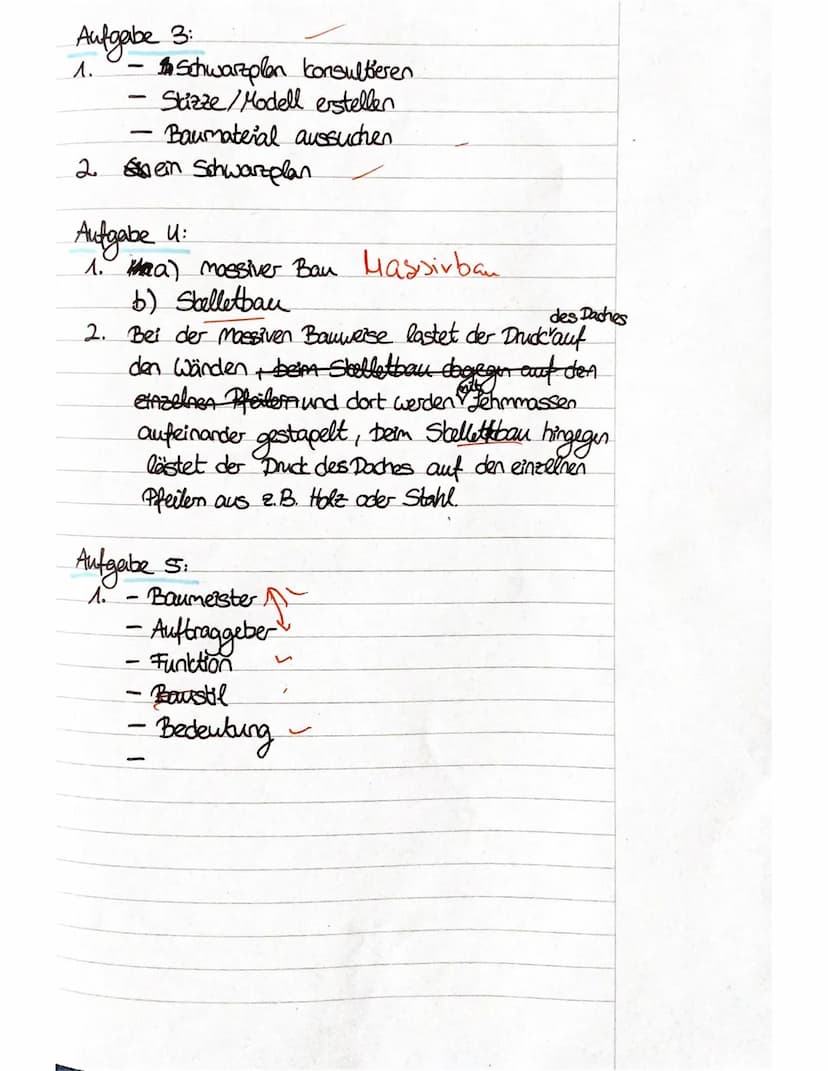 Aufgabe 3:
1. - Schwarzplan konsultieren
- Skizze/Modell erstellen
- Baumaterial aussuchen
2. ein Schwarzplan
Aufgabe 4:
1. a) massiver Bau Massivbau
b) Skelletbau
des Daches
2. Bei der massiven Bauweise lastet der Druck auf
den Wänden, beim Skelletbau dagegen auf den
einzelnen Pfeilern und dort werden mit Lehmmassen
aufeinander gestapelt, beim Skelettbau hingegen
lastet der Druck des Daches auf den einzelnen
Pfeilern aus z.B. Holz oder Stahl.
Aufgabe 5:
1. - Baumeister
- Auftraggeber
- Funktion
- Baustil
- Bedeutung
-